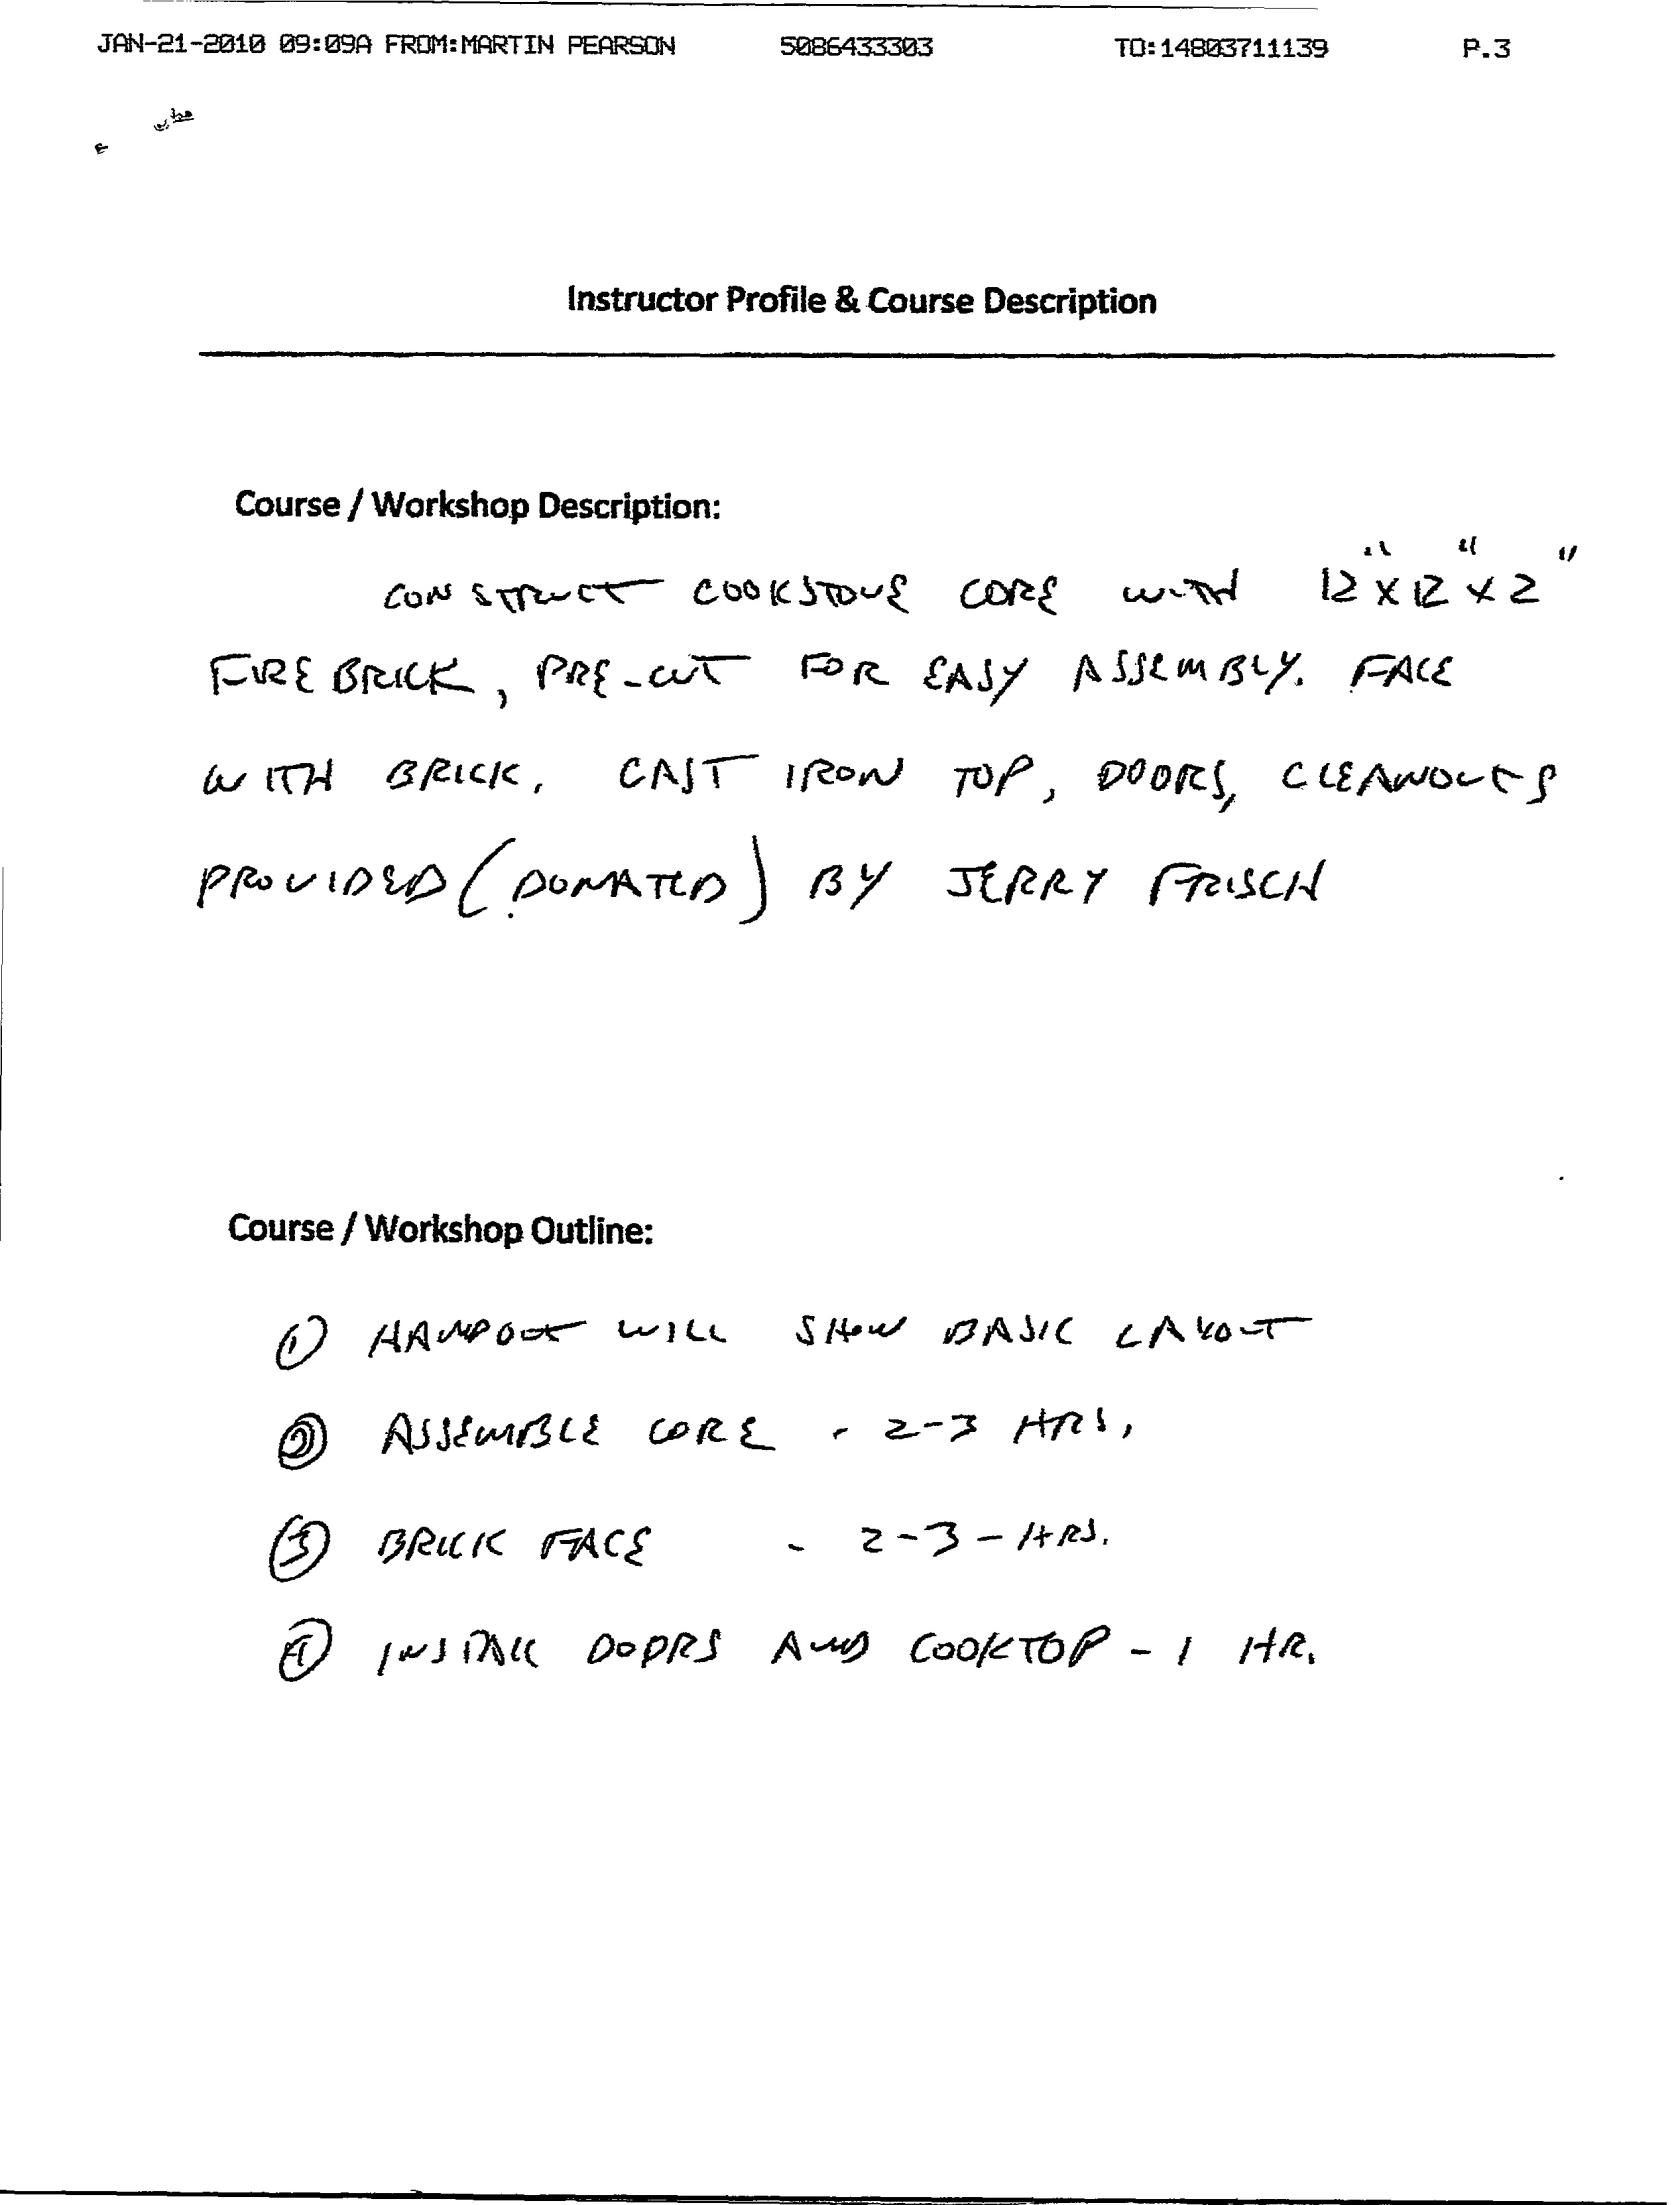 JAN-21-2010 09:09A FROM:MARTIN PEARSON 5086433303 TO:14803711139 P.3
Instructor Profile & Course Description
Course / Workshop Description:
CONSTRUCT COOKSTOVE CORE WITH 12"X12"X2"
FIREBRICK, PRE-CUT FOR EASY ASSEMBLY. FACE
WITH BRICK. CAST IRON TOP, DOORS, CLEANOUTS
PROVIDED (DONATED) BY JERRY FRISCH
Course / Workshop Outline:
① HANDOUT WILL SHOW BASIC LAYOUT
② ASSEMBLE CORE - 2-3 HRS.
③ BRICK FACE - 2-3-HRS.
④ INSTALL DOORS AND COOKTOP - 1 HR.